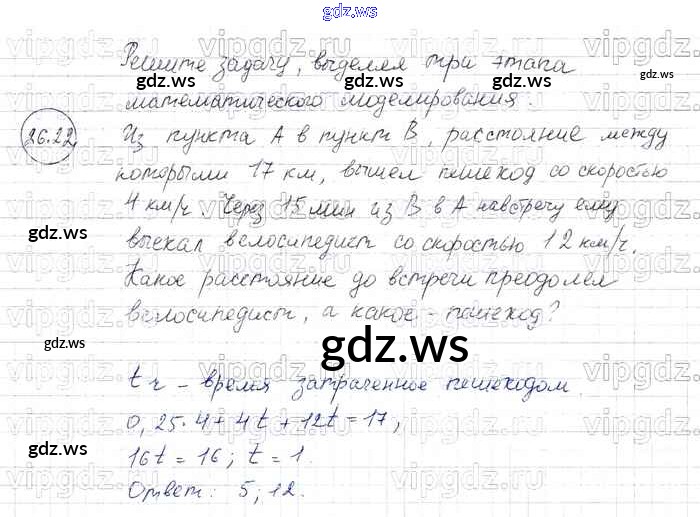 gdz.ws
Решите задачу, выделяя три этапа
математического моделирования.
26.22
Из пункта А в пункт В, расстояние между
которыми 17 км, вышел пешеход со скоростью
4 км/ч. Через 15 мин из В в А навстречу ему
выехал велосипедист со скоростью 12 км/ч.
Какое расстояние до встречи преодолел
велосипедист, а какое - пешеход?
t ч - время затраченное пешеходом.
0,25·4 + 4t + 12t = 17,
16t = 16; t = 1.
Ответ: 5; 12.
gdz.ws
gdz.ws
gdz.ws
gdz.ws
gdz.ws
gdz.ws
gdz.ws
gdz.ws
vipgdz.com